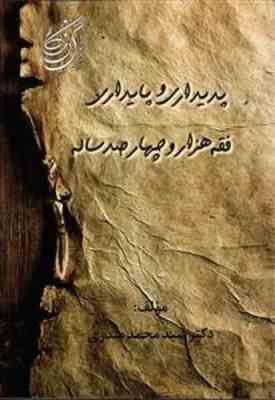 پدیداری و پایداری
فقه هزار و چهارصد ساله
مؤلف:
دکتر سید محمد صدری